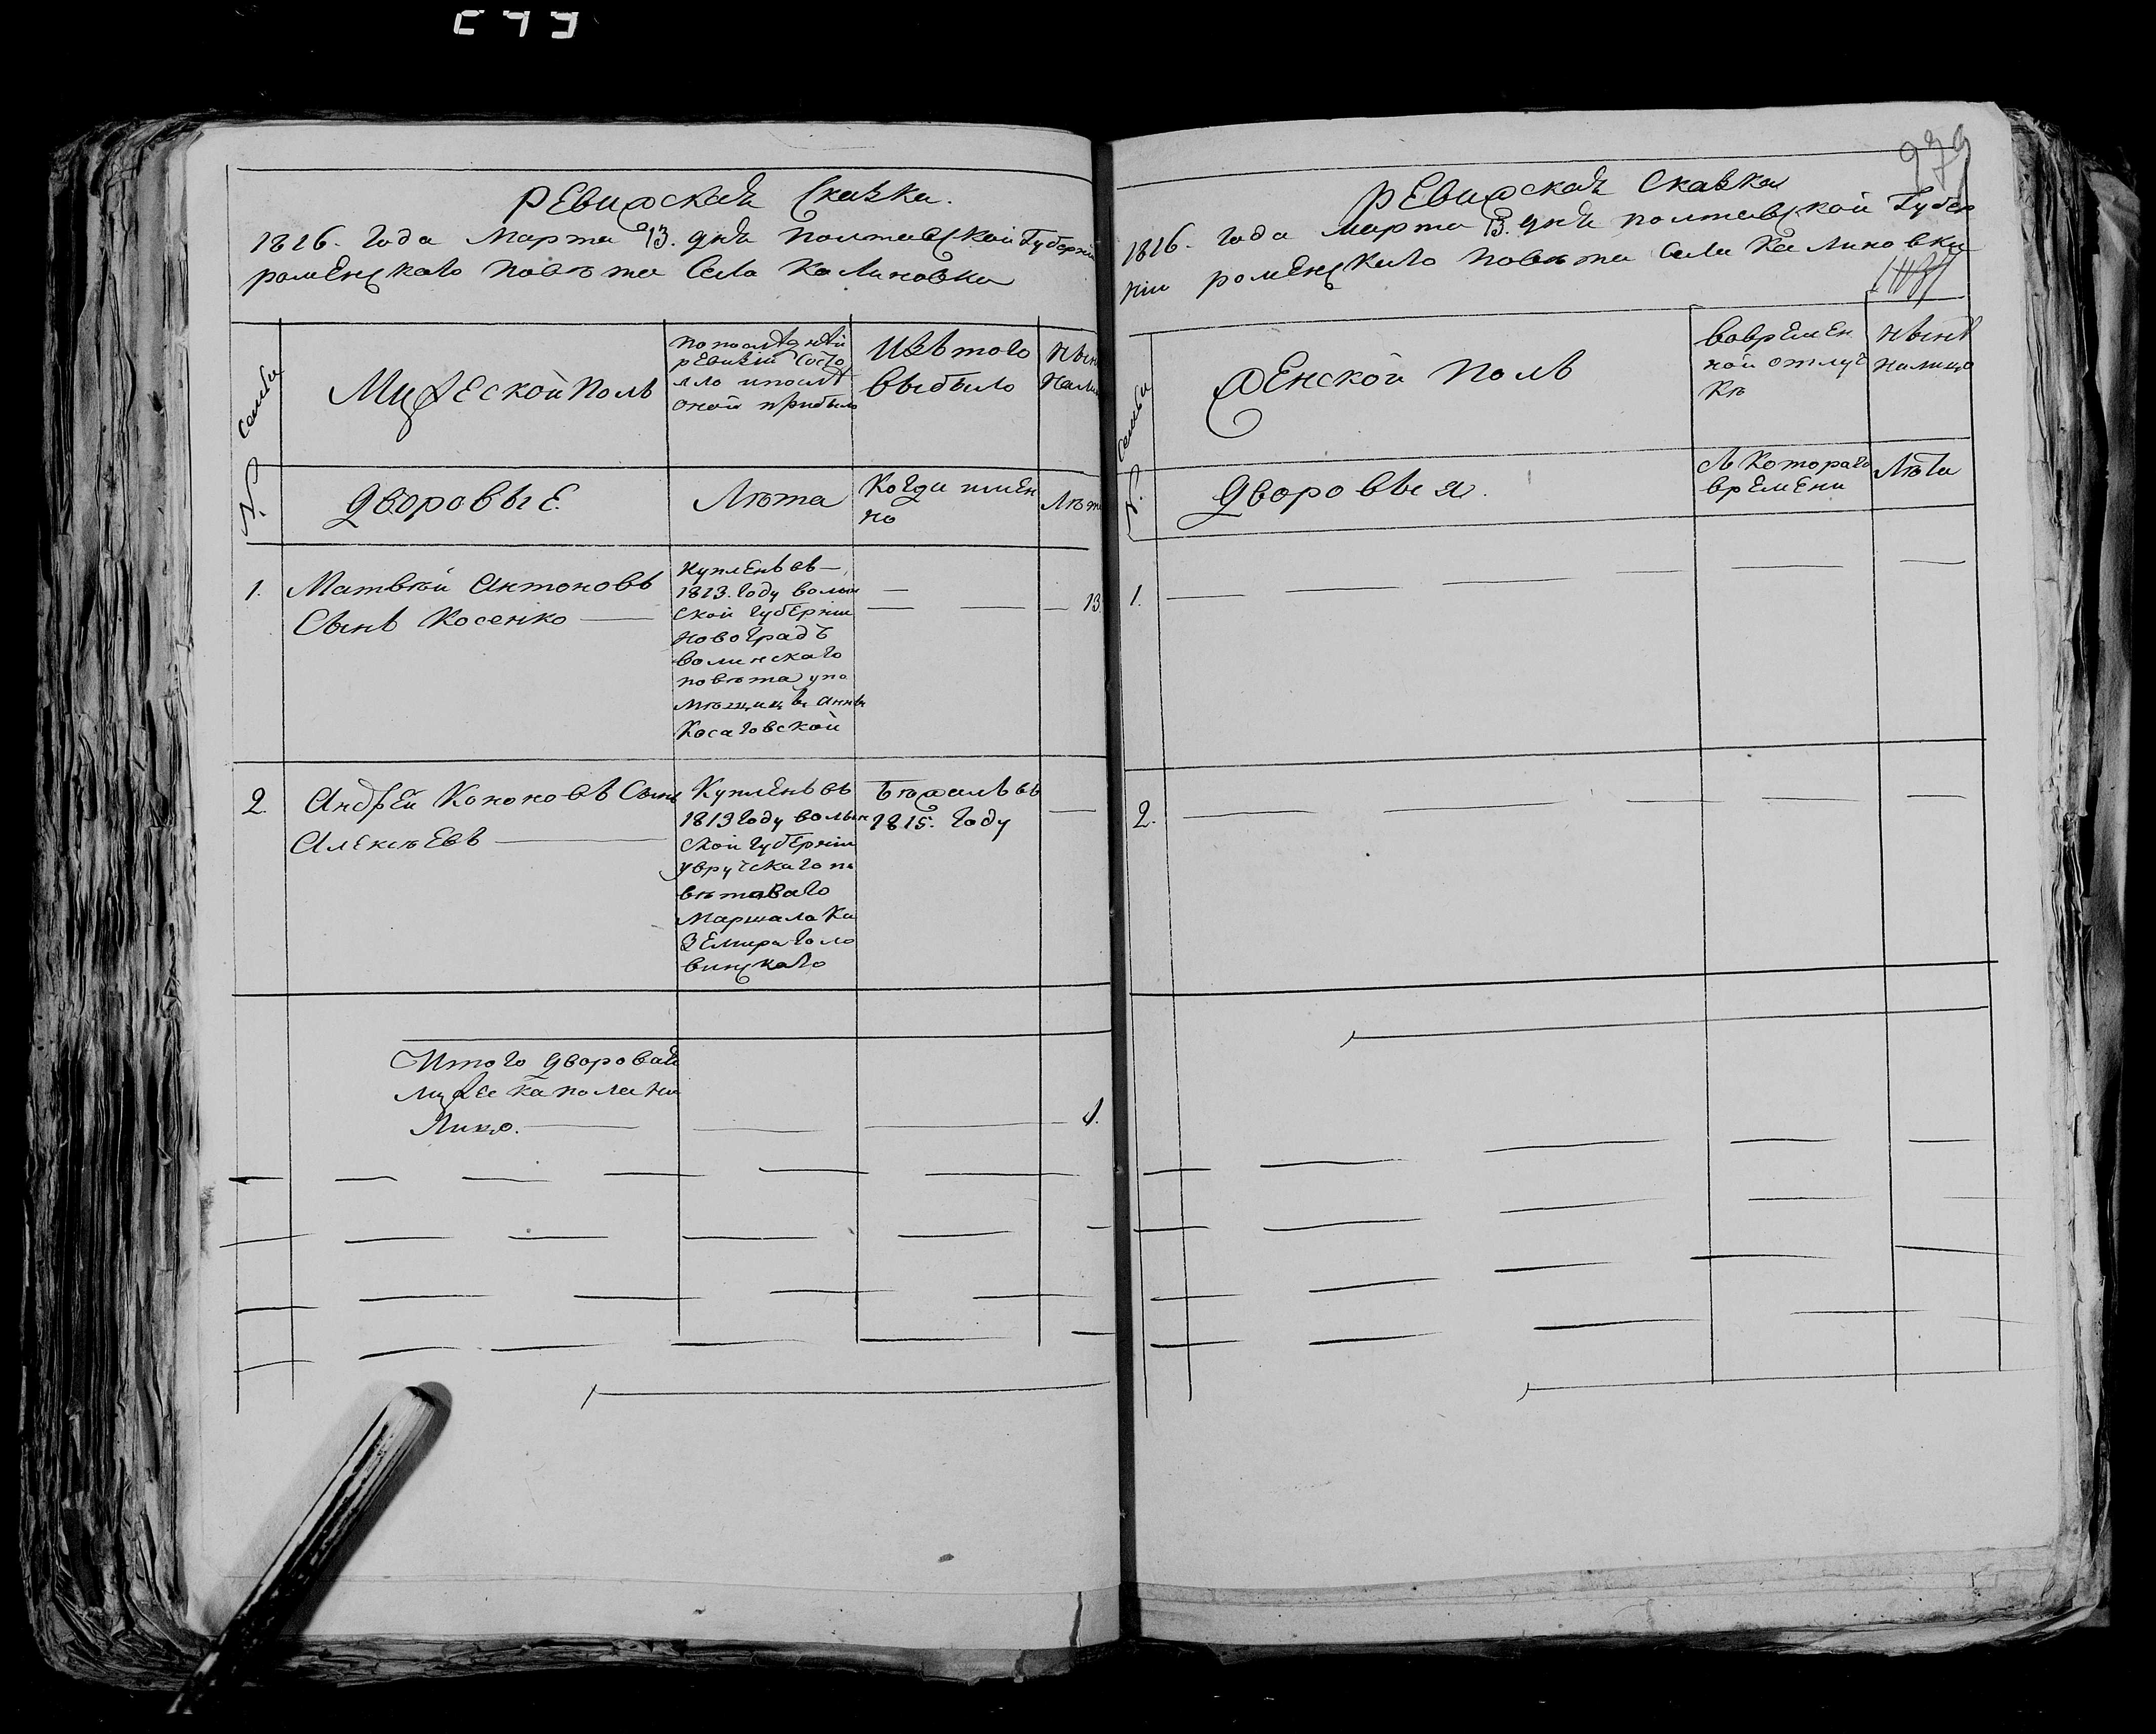 Ревизская Сказка.
1816. года Марта 13. дня Полтавской Губерніи
роменскаго повѣта Села Калиновки
семьи
Мужеской Полъ
по послѣдней
ревизіи состо
яло и послѣ
оной прибыло
Изъ того
выбыло
Нын
Нали
№
Дворовые.
Лѣта
Когда имен
но
Лѣт
1.
Матвѣй Антоновъ
Сынъ Косенко
Купленъ въ
1813. году волын
ской губерніи
новоградъ
волинскаго
повѣта у по
мѣщицы Анны
Косаговской
13
2.
Андрей Кононовъ Сынъ
Алексѣевъ
Купленъ въ
1813 году волын
ской губерніи
увруческаго по
вѣтоваго
Маршала Ка
земира Голо
винскаго
Бѣжалъ въ
1815. году
Итого дворовых
мужеска пола на
лицо.
1.
979
Ревизская Сказка
1816. года марта 13. дня полтавской Губер
ніи роменскаго повѣта Села Калиновки
семьи
Женской Полъ
во времен
ной отлуч
кѣ
Нынѣ
налицо
№.
Дворовыя.
съ котораго
времени
Лѣта
1.
2.